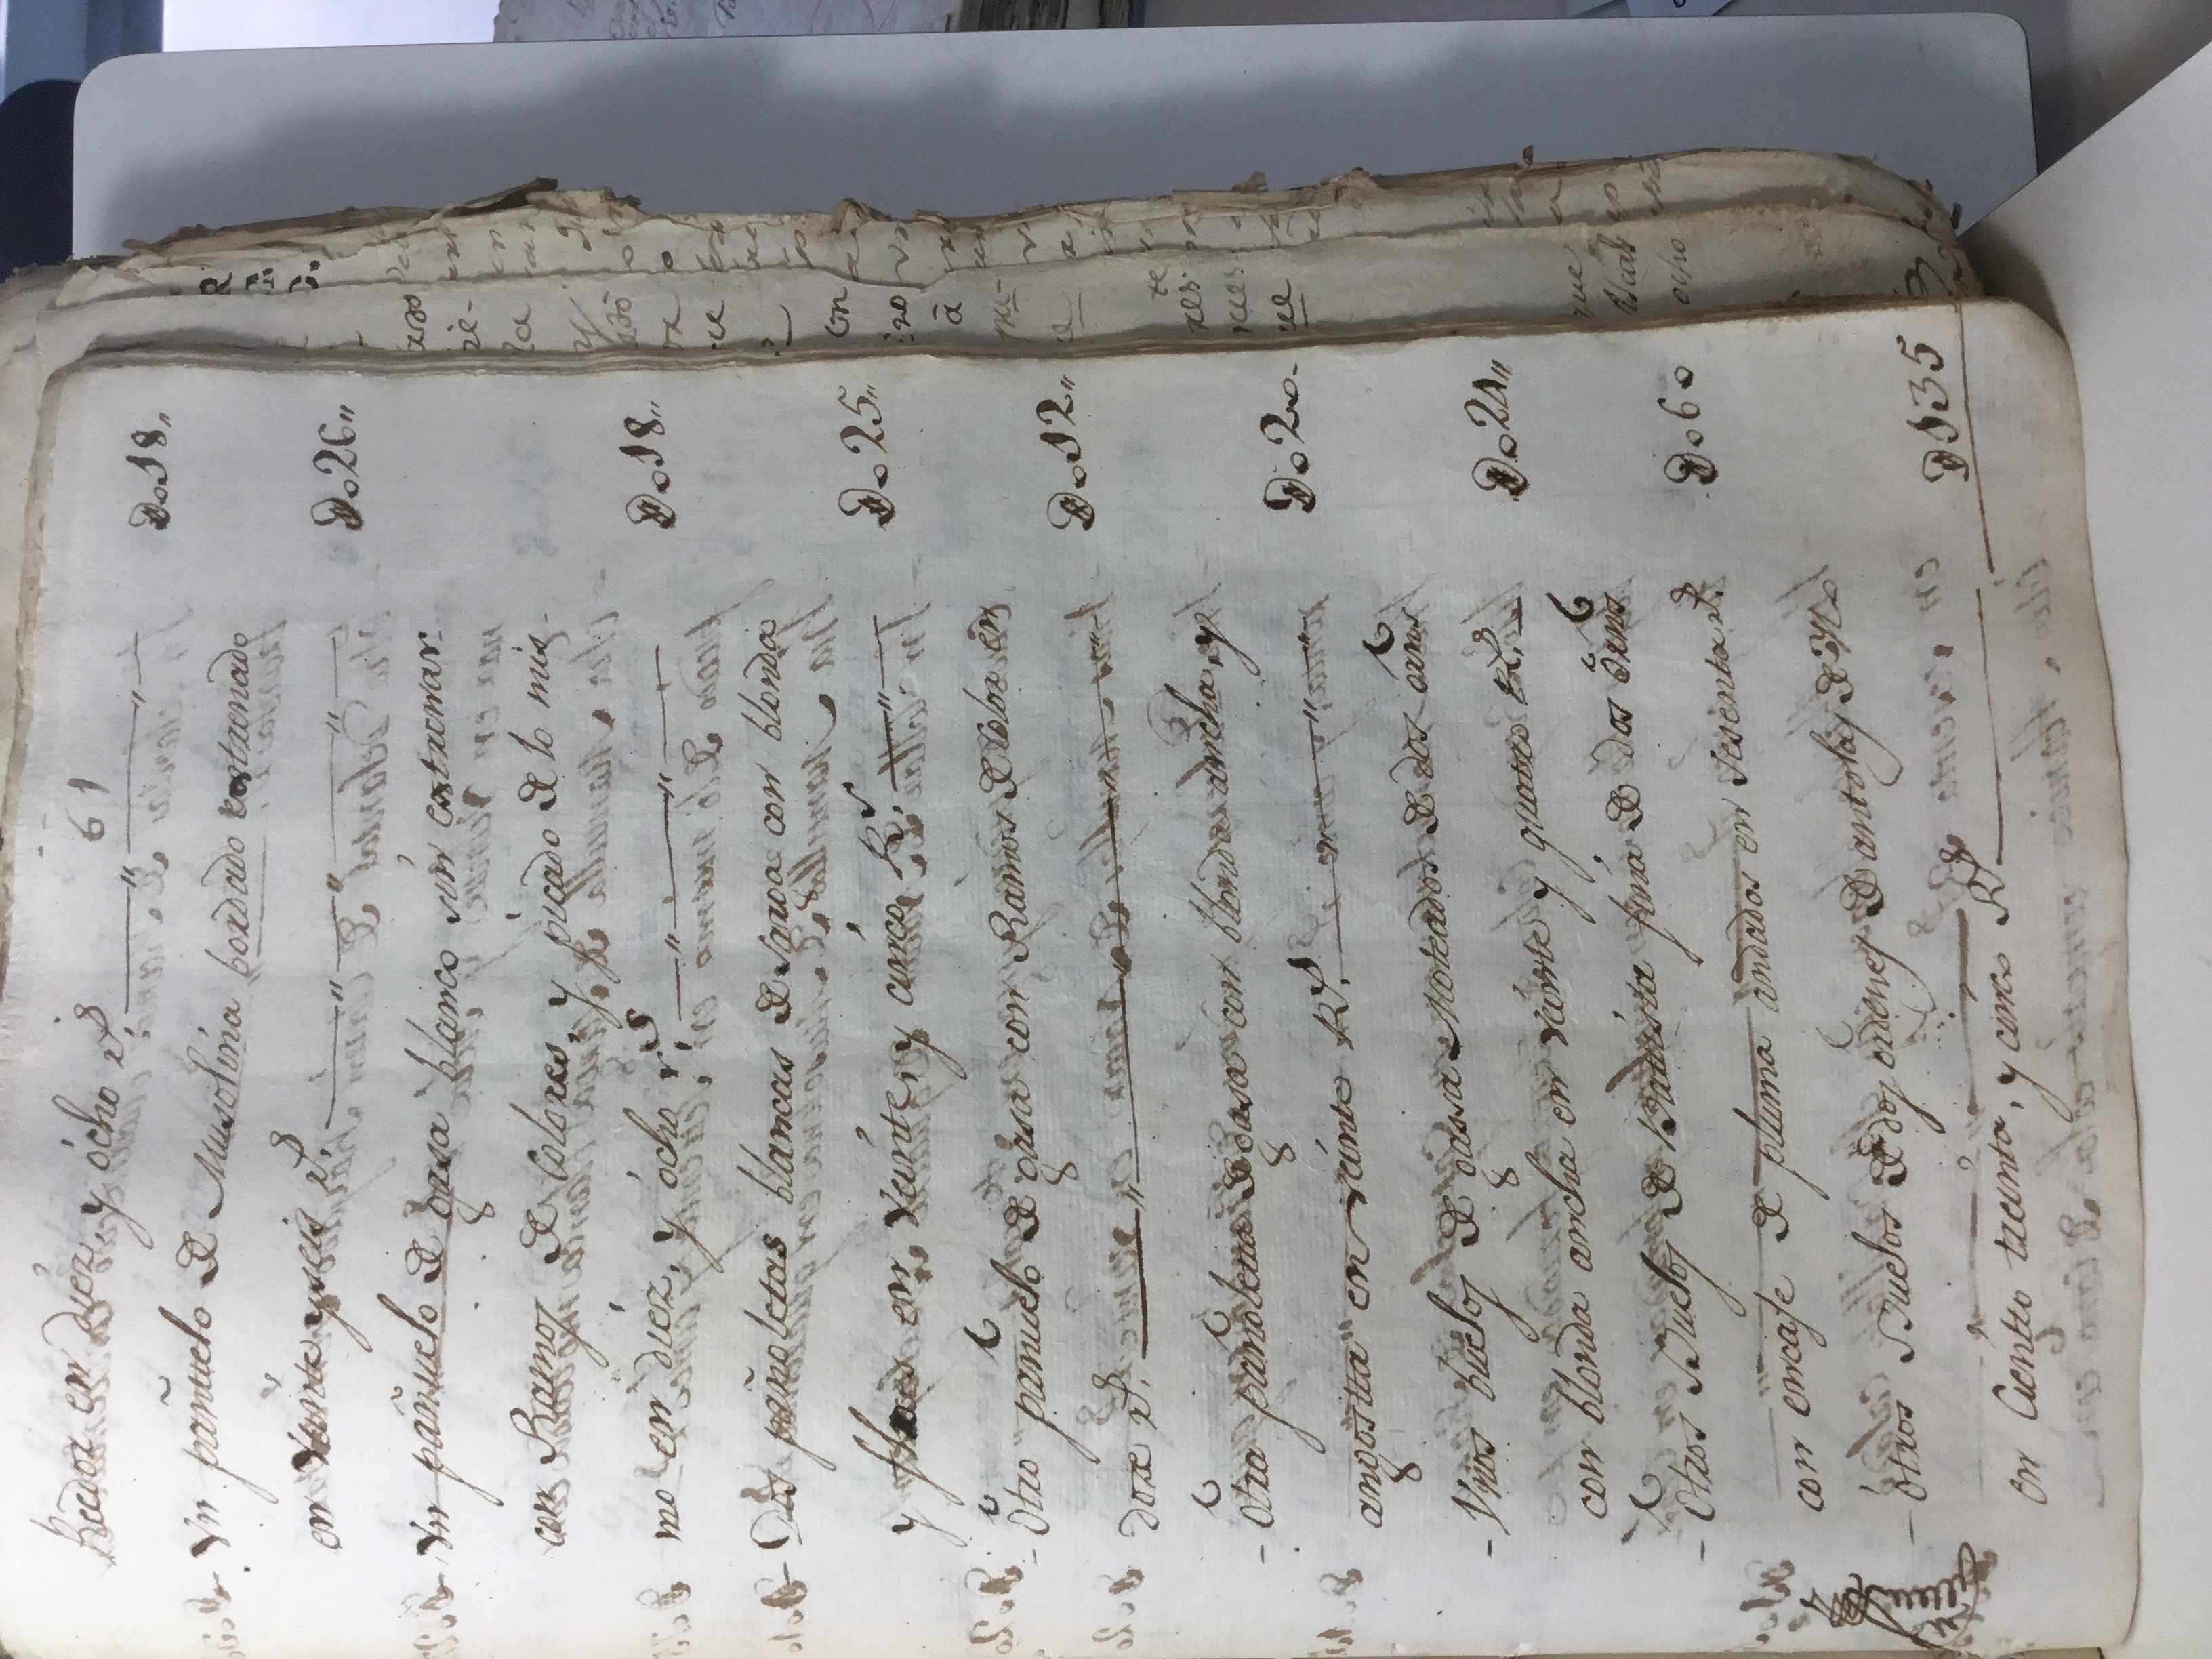 61
Redor en diez, y ócho rs D.o18,,
Vn pañuelo de Musolina bordado costurado
en veinte y seis rs D.o26,,
Vn pañuelo de gasa blanco sin costurar
con Ramos de Colores, y picado de lo mis-
mo en diez, y ócho rs D.o18,,
Dos pañoletas blancas de Smoa con blonda
y en veinte, y cinco Rs D.o25,,
Otro pañuelo de gasa con Ramos de Color en
doze rs D.o12,,
Otra pañoleta de gasa con blonda ancha, y
angostta en veinte Rs D.o20-
Vnos buelos de gasa Moteados de dos
con blonda ancha en veinte, y quatro Rs D.o24,,
Otros Buelos de Battista fina de dos
de pluma undados en sesenta rs D.o60
con encaje
Otros Buelos de dos ordenes de antolas de
en Ciento treinta, y cinco Rs D.o135